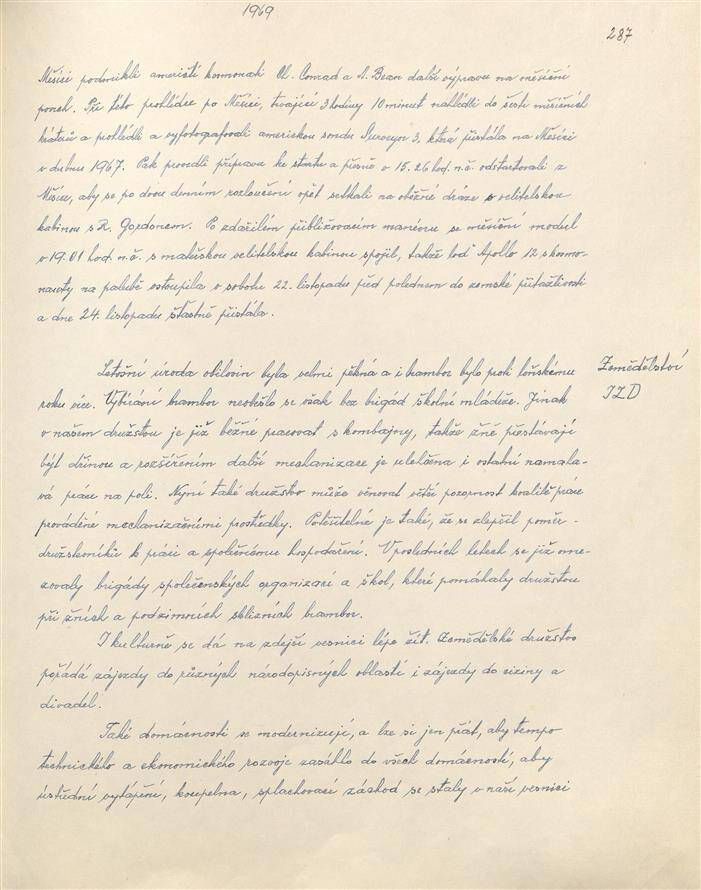 1969
287
Měsíci podnikli američtí kosmonauti Ch. Conrad a A. Bean další výpravu na měsíční
povrch. Při této prohlídce po Měsíci, trvající 3 hodiny 10 minut nahlédli do šesti měsíčních
kráterů a prohlédli a vyfotografovali americkou sondu Surveyor 3, která přistála na Měsíci
v dubnu 1967. Pak provedli přípravu ke startu a přesně v 15.26 hod. n.č. odstartovali z
Měsíce, aby se po dvou denním rozloučení opět setkali na oběžné dráze s velitelskou
kabinou s R. Gordonem. Po zdařilém přibližovacím manévru se měsíční modul
v 19.01 hod. n.č. s mateřskou velitelskou kabinou spojil, takže loď Apollo 12 s kosmo-
nauty na palubě vstoupila v sobotu 22. listopadu před polednem do zemské přitažlivosti
a dne 24. listopadu šťastně přistála.
Letošní úroda obilovin byla velmi pěkná a i brambor bylo proti loňskému
roku více. Vybírání brambor neobešlo se však bez brigád školní mládeže. Jinak
v našem družstvu je již běžné pracovat s kombajny, takže žně přestávají
být dřinou a rozšířením další mechanizace je ulehčena i ostatní namaha-
vá práce na poli. Nyní také družstvo může věnovat větší pozornost kvalitě práce
prováděné mechanizačními prostředky. Potěšitelné je také, že se zlepšil poměr -
družstevníků k práci a společnému hospodaření. V posledních letech se již ome-
zovaly brigády společenských organizací a škol, které pomáhaly družstvu
při žních a podzimních sklizních brambor.
I kulturně se dá na zdejší vesnici lépe žít. Zemědělské družstvo
pořádá zájezdy do různých národopisných oblastí i zájezdy do ciziny a
divadel.
Také domácnosti se modernizují, a lze si jen přát, aby tempo
technického a ekonomického rozvoje zasáhlo do všech domácností, aby
ústřední vytápění, koupelna, splachovací záchod se staly v naší vesnici
Zemědělství
JZD